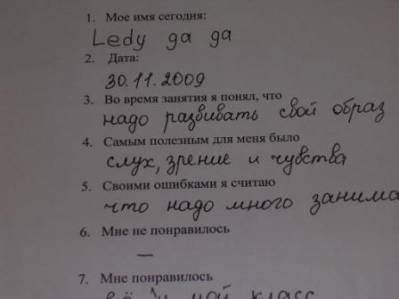 1. Мое имя сегодня:
Ledy да да
2. Дата:
30.11.2009
3. Во время занятия я понял, что
надо развивать свой образ
4. Самым полезным для меня было
слух, зрение и чувства
5. Своими ошибками я считаю
что надо много занима
6. Мне не понравилось
—
7. Мне понравилось
мой класс